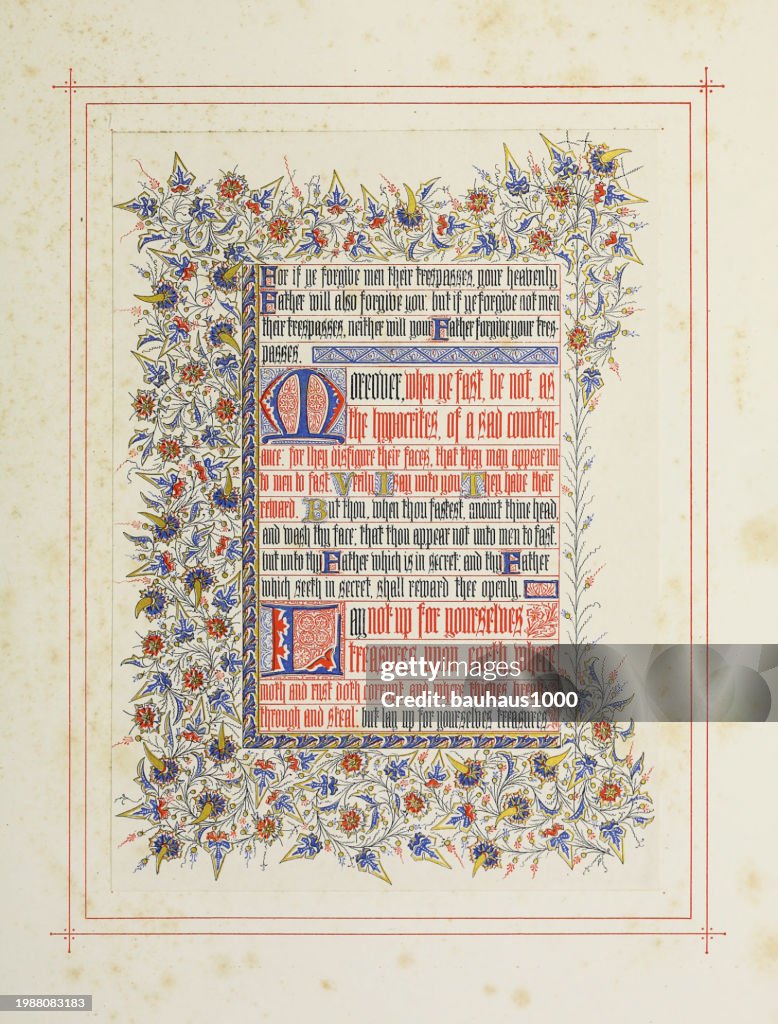 For if ye forgive men their trespasses, your heavenly
Father will also forgive you: but if ye forgive not men
their trespasses, neither will your Father forgive your tres-
passes.
Moreover, when ye fast, be not, as
the hypocrites, of a sad counten-
ance: for they disfigure their faces, that they may appear un-
to men to fast. Verily I say unto you They have their
reward. But thou, when thou fastest, anoint thine head,
and wash thy face; that thou appear not unto men to fast,
but unto thy Father which is in secret: and thy Father
which seeth in secret, shall reward thee openly.
Lay not up for yourselves
treasures upon earth where
moth and rust doth corrupt and where thieves break
through and steal: but lay up for yourselves treasures
gettyimages
Credit: bauhaus1000
1988083183